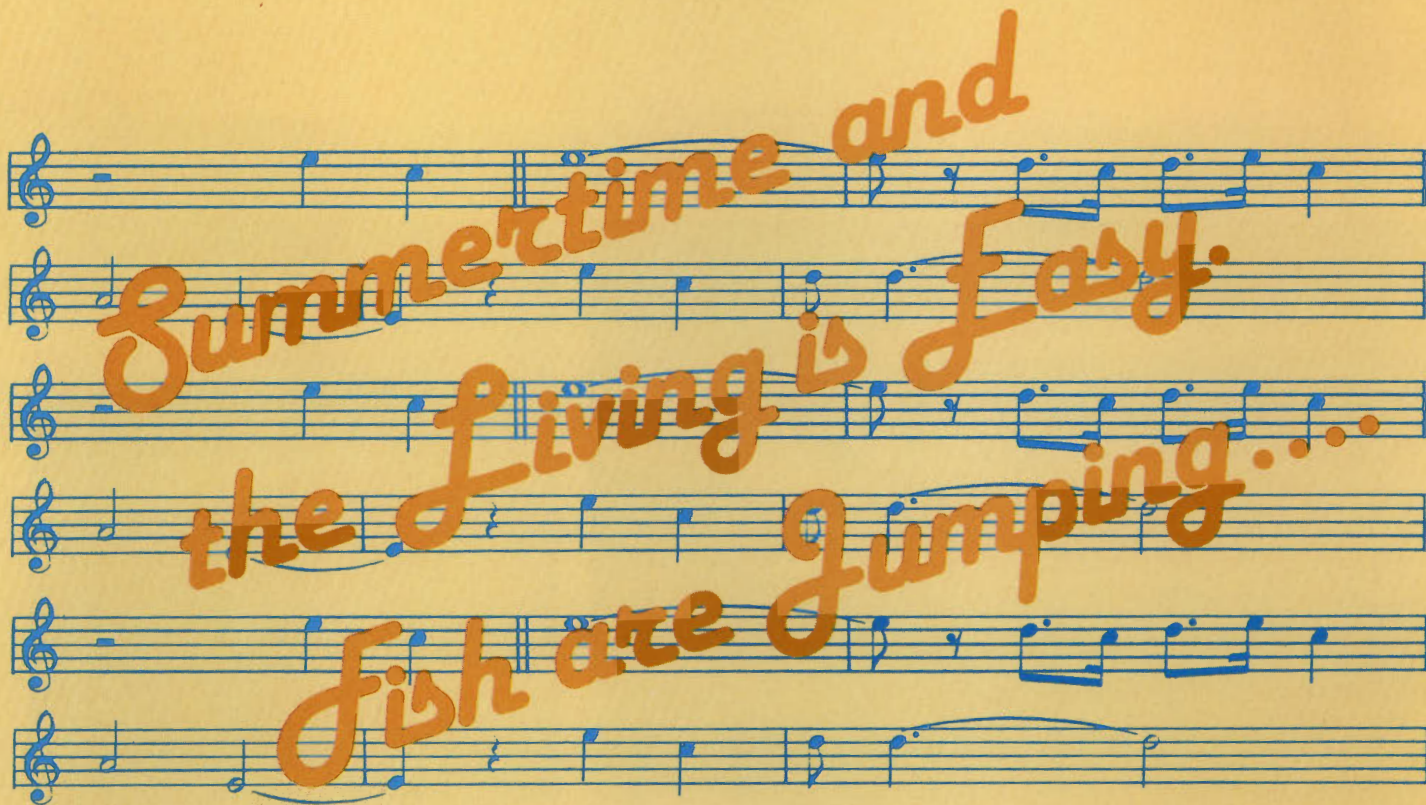 Summertime and
the Living is Easy.
Fish are Jumping....